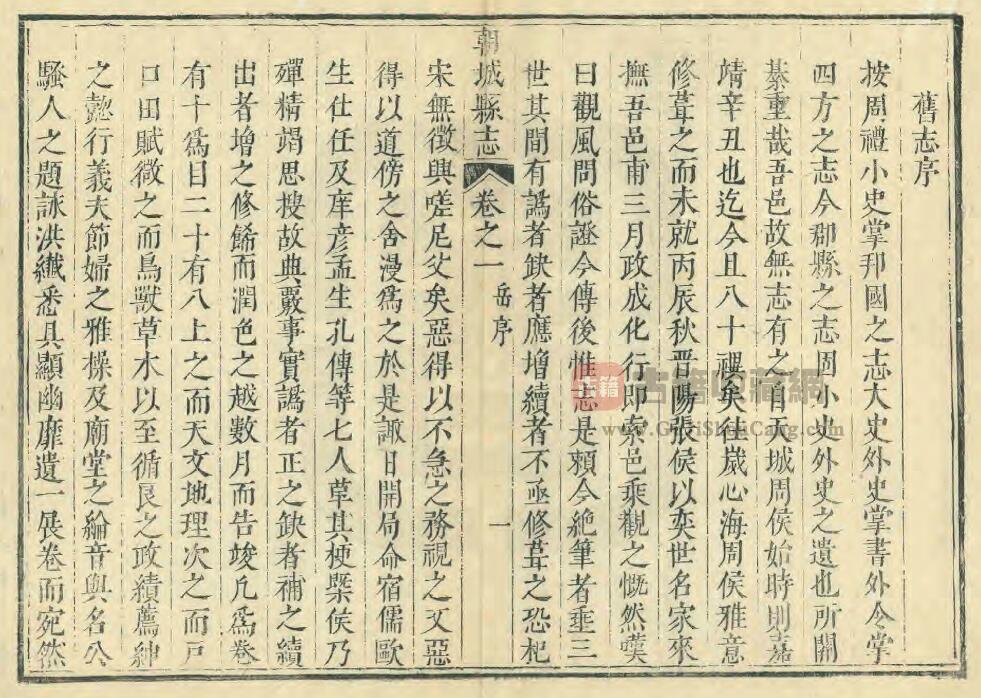 舊志序
按周禮小史掌邦國之志大史外史掌書外令掌
四方之志今郡縣之志固小史外史之遺也所關
綦重哉吾邑故無志有之自天城周侯始時則嘉
靖辛丑也迄今且八十禩矣往歲心海周侯雅意
修葺之而未就丙辰秋晋陽張侯以奕世名家來
撫吾邑甫三月政成化行即索邑乘觀之慨然嘆
曰觀風問俗證今傳後惟志是賴今絶筆者垂三
世其間有譌者缺者應增續者不亟修葺之恐杞
朝城縣志 卷之一 岳序 一
宋無徵興嗟尼父矣惡得以不急之務視之又惡
得以道傍之舍漫爲之於是諏日開局命宿儒歐
生仕任及庠彦孟生孔傳等七人草其梗槩侯乃
殫精竭思搜故典覈事實譌者正之缺者補之續
出者增之修餙而潤色之越數月而告竣凡爲卷
有十爲目二十有八上之而天文地理次之而戸
口田賦微之而鳥獸草木以至循良之政績薦紳
之懿行義夫節婦之雅操及廟堂之綸音與名公
騷人之題詠洪纎悉具顯幽靡遺一展卷而宛然
古籍收藏網
www.GuJiShouCang.com
古籍